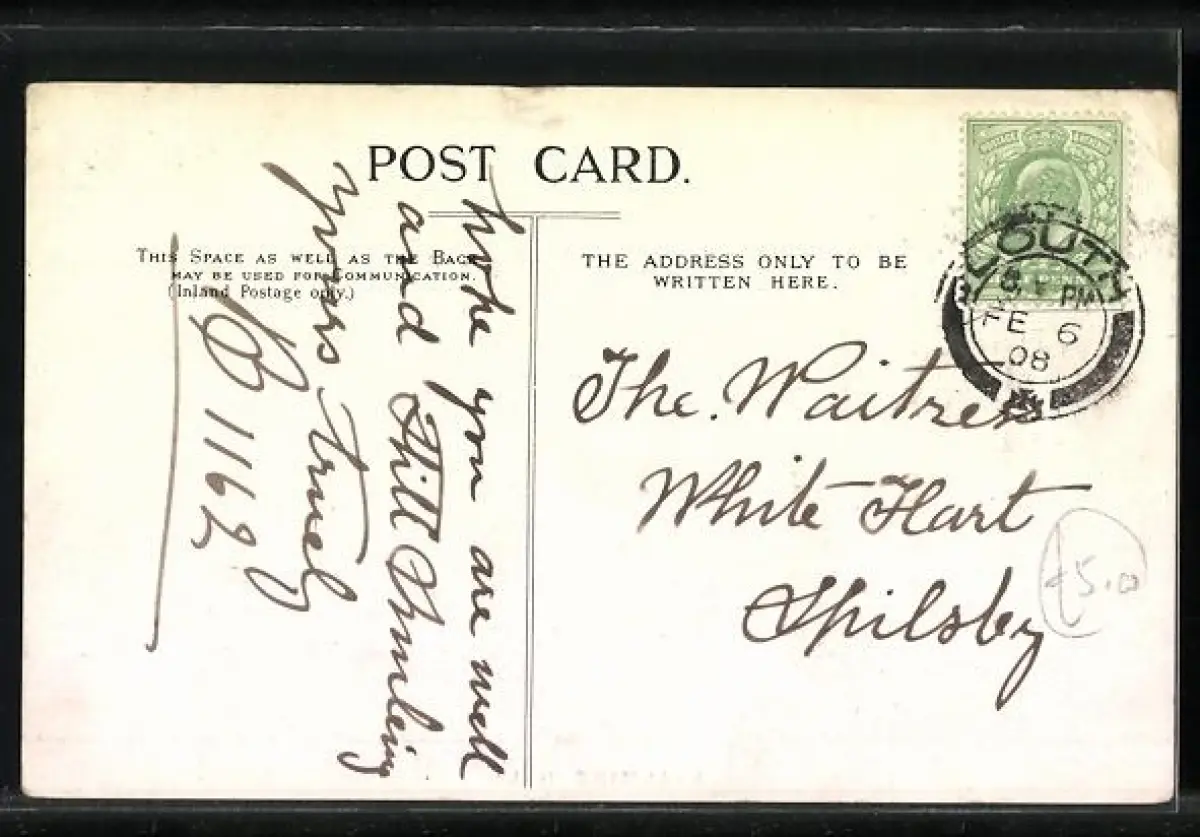 POST CARD.
THIS SPACE AS WELL AS THE BACK
MAY BE USED FOR COMMUNICATION.
(Inland Postage only.)
Hope you are well
and Still Smileing
yours truely
B 1162
THE ADDRESS ONLY TO BE
WRITTEN HERE.
The. Waitress
White Hart
Spilsby
LOUTH
PM
FE 6
08
£5.00